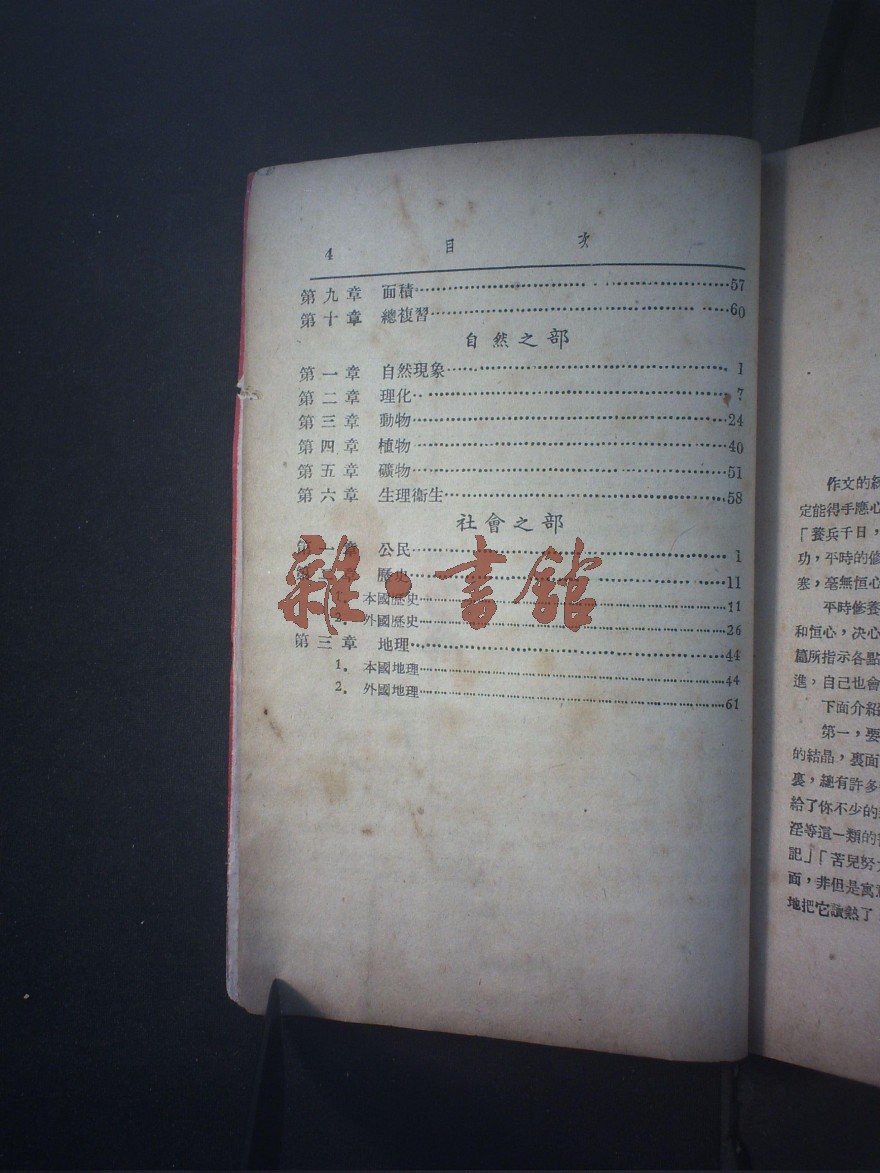 4 目次
第九章 面積……57
第十章 總複習……60
自然之部
第一章 自然現象……1
第二章 理化……7
第三章 動物……24
第四章 植物……40
第五章 礦物……51
第六章 生理衞生……58
社會之部
第一章 公民……1
第二章 歷史……11
1. 本國歷史……11
2. 外國歷史……26
第三章 地理……44
1. 本國地理……44
2. 外國地理……61
雜·書館
作文的
定能得手應心
「養兵千日，
功，平時的修
寒，毫無恒心
平時修養
和恒心，決心
篇所指示各點
進，自己也會
下面介紹
第一，要
的結晶，裏面
裏，總有許多
給了你不少的
淫等這一類的
記」「苦兒努
面，非但是寓
地把它讀熟了